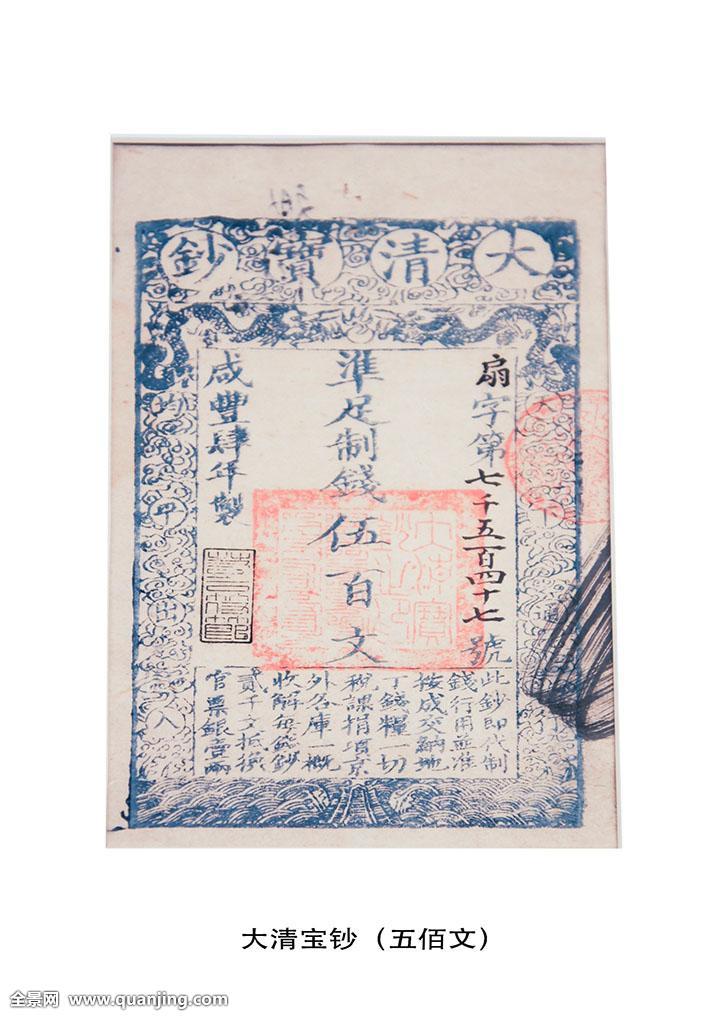 大清寶鈔
扇字第七千五百四十七號
準足制錢伍百文
咸豐肆年製
此鈔即代制
錢行用並准
按成交納地
丁錢糧一切
稅課捐項京
外各庫一概
收解每錢鈔
貳千文抵換
官票銀壹兩
大清宝钞（五佰文）
全景网 www.quanjing.com ©